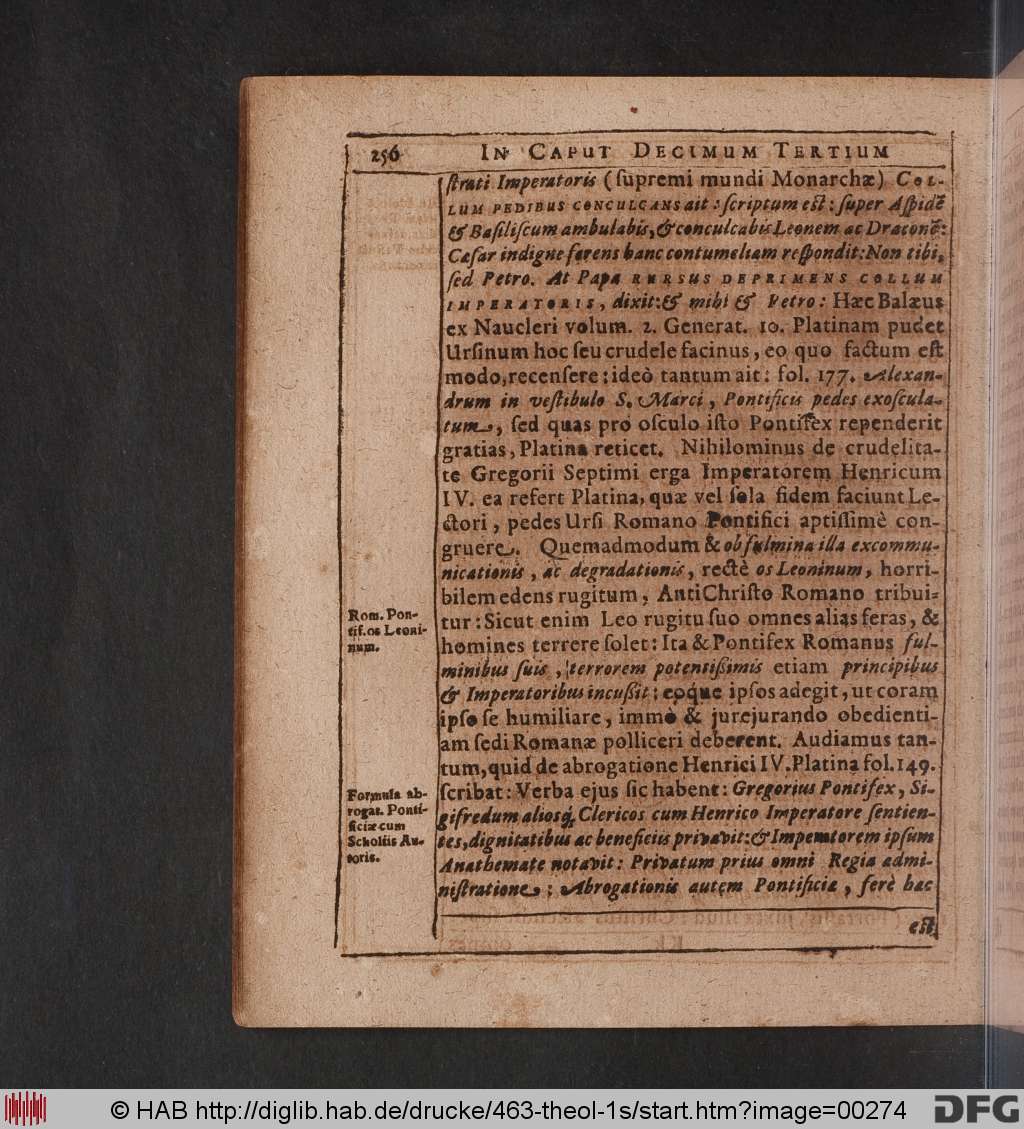 256 IN CAPUT DECIMUM TERTIUM
ſtrati Imperatoris (ſupremi mundi Monarchæ) COL-
LUM PEDIBUS CONCULCANS ait: ſcriptum eſt: ſuper Aſpidē
& Baſiliſcum ambulabis, & conculcabis Leonem ac Draconē:
Cæſar indigne ferens hanc contumeliam reſpondit: Non tibi,
ſed Petro. At Papa RURSUS DEPRIMENS COLLUM
IMPERATORIS, dixit: & mihi & Petro: Hæc Balæus
ex Naucleri volum. 2. Generat. 10. Platinam pudet
Urſinum hoc ſeu crudele facinus, eo quo factum eſt
modo, recenſere: ideò tantum ait: fol. 177. Alexan-
drum in veſtibulo S. Marci, Pontificis pedes exoſcula-
tum, ſed quas pro oſculo iſto Pontifex rependerit
gratias, Platina reticet. Nihilominus de crudelita-
te Gregorii Septimi erga Imperatorem Henricum
IV. ea refert Platina, quæ vel ſola fidem faciunt Le-
ctori, pedes Urſi Romano Pontifici aptiſſimè con-
gruere. Quemadmodum & ob fulmina illa excommu-
nicationis, ac degradationis, rectè os Leoninum, horri-
bilem edens rugitum, AntiChriſto Romano tribui-
tur: Sicut enim Leo rugitu ſuo omnes alias feras, &
homines terrere ſolet: Ita & Pontifex Romanus ful-
minibus ſuis, terrorem potentißimis etiam principibus
& Imperatoribus incußit; eoque ipſos adegit, ut coram
ipſo ſe humiliare, immò & jurejurando obedienti-
am ſedi Romanæ polliceri deberent. Audiamus tan-
tum, quid de abrogatione Henrici IV. Platina fol. 149.
ſcribat: Verba ejus ſic habent: Gregorius Pontifex, Si-
gifredum aliosq́; Clericos cum Henrico Imperatore ſentien-
tes, dignitatibus ac beneficiis privavit: & Imperatorem ipſum
Anathemate notavit: Privatum prius omni Regia admi-
niſtratione; Abrogationis autem Pontificiæ, ferè hæc
eſt
Rom. Pon-
tif. os Leoni-
num.
Formula ab-
rogat. Ponti-
ficiæ cum
Scholiis Au-
toris.
© HAB http://diglib.hab.de/drucke/463-theol-1s/start.htm?image=00274
DFG